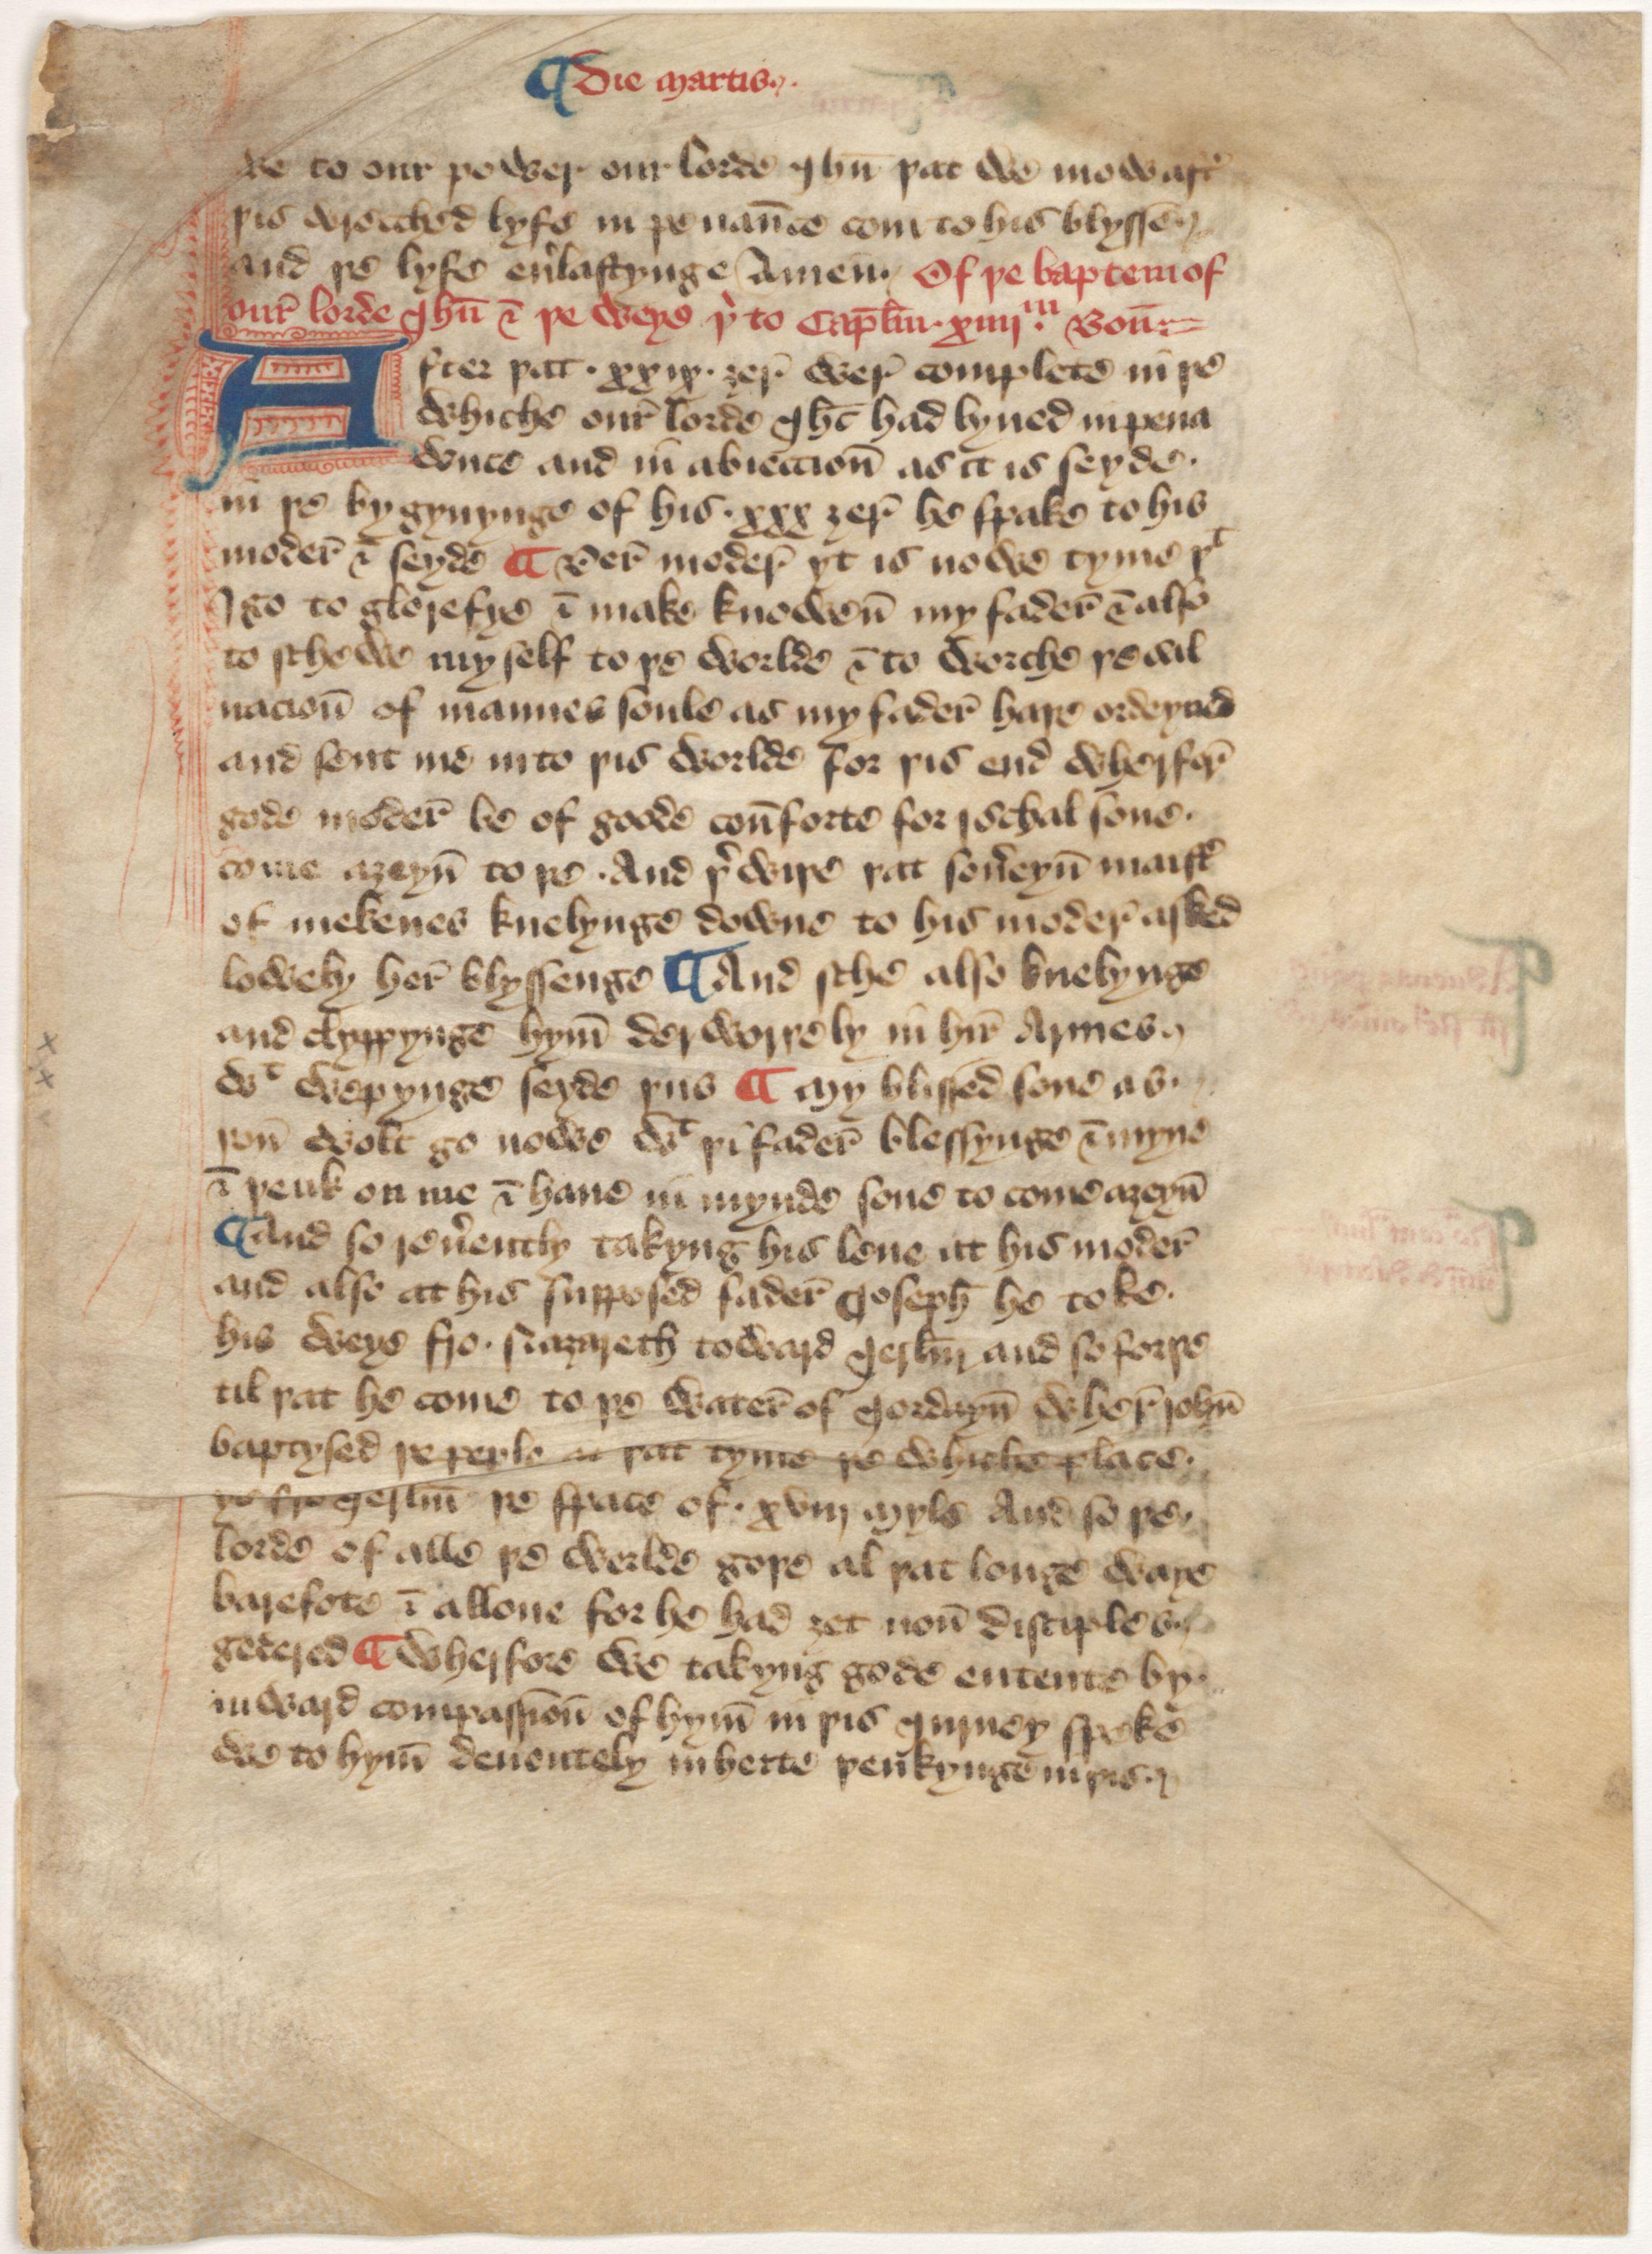 ¶ Die martis
we to our power our lorde Ihū þat we mow aft̉
þis wrecched lyfe in penaūce com to his blysse
and þe lyfe eủlastynge Amen. Of þe baptem of
our̄ lorde Ihū ⁊ þe weye þ̉ to Capl̄m. xiiijᵐ. Bon̄
After þat . xxix . ȝer̄ wer̄ complete in þe
whiche our̄ lorde Ihc̄ had lyued in pena
wnce and in abieccion̄ as it is seyde.
in þe bygynynge of his . xxx ȝer̄ he spake to his
moder̄ ⁊ seyde ¶ Der̄ moder̄ yt is nowe tyme þᵗ
I go to glorefye ⁊ make knowen̄ my fader̄ ⁊ also
to schewe my self to þe worlde ⁊ to worche þe sal
uacion̄ of mannes soule as my fader̄ haþe ordeyned
and sent me into þis worlde for þis end wherfor̄
gode moder̄ be of goode con̄forte for I schal sone.
come aȝeyn̄ to þe . And þ̉ wiþe þat soủeyn̄ maist̉
of mekenes knelynge downe to his moder̄ asked
lowely her̄ blyssenge ¶ And sche also knelynge
and clyppynge hym̄ derworþely in hir̄ Armes
wᵗ wepynge seyde þus ¶ My blissed sone as.
þoū wolt go nowe wᵗ þi fader̄ blessynge ⁊ myne
⁊ þenk on me ⁊ haue in mynde sone to come aȝeyn̄
¶ And so reủently takyng his leue at his moder̄
and also at his supposed fader̄ Joseph̄ he toke.
his weye fro . Naȝareth toward Jerlm̄ and so forþe
til þat he come to þe water̄ of Jordayn̄ wher̄ John̄
baptysed þe peple at þat tyme þe whiche place.
ys fro Jerlm̄ þe space of . xviij myle And so þe.
lorde of alle þe worlde goþe al þat longe waye
barefote ⁊ allone for he had ȝet non̄ disciples
gedered ¶ Wherfore we takyng gode entente by.
inward compassion̄ of hym̄ in þis Jurney speke
we to hym̄ deuoutely in herte þenkynge in þis